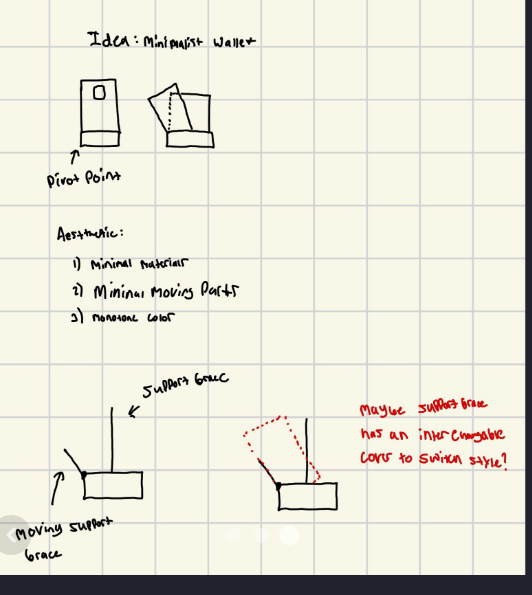 Idea: Minimalist Wallet
Pivot Point
Aesthetic:
1) Minimal Materials
2) Minimal Moving Parts
3) Monotone Color
Support brace
Moving support
brace
Maybe support brace
has an interchangable
cover to switch style?